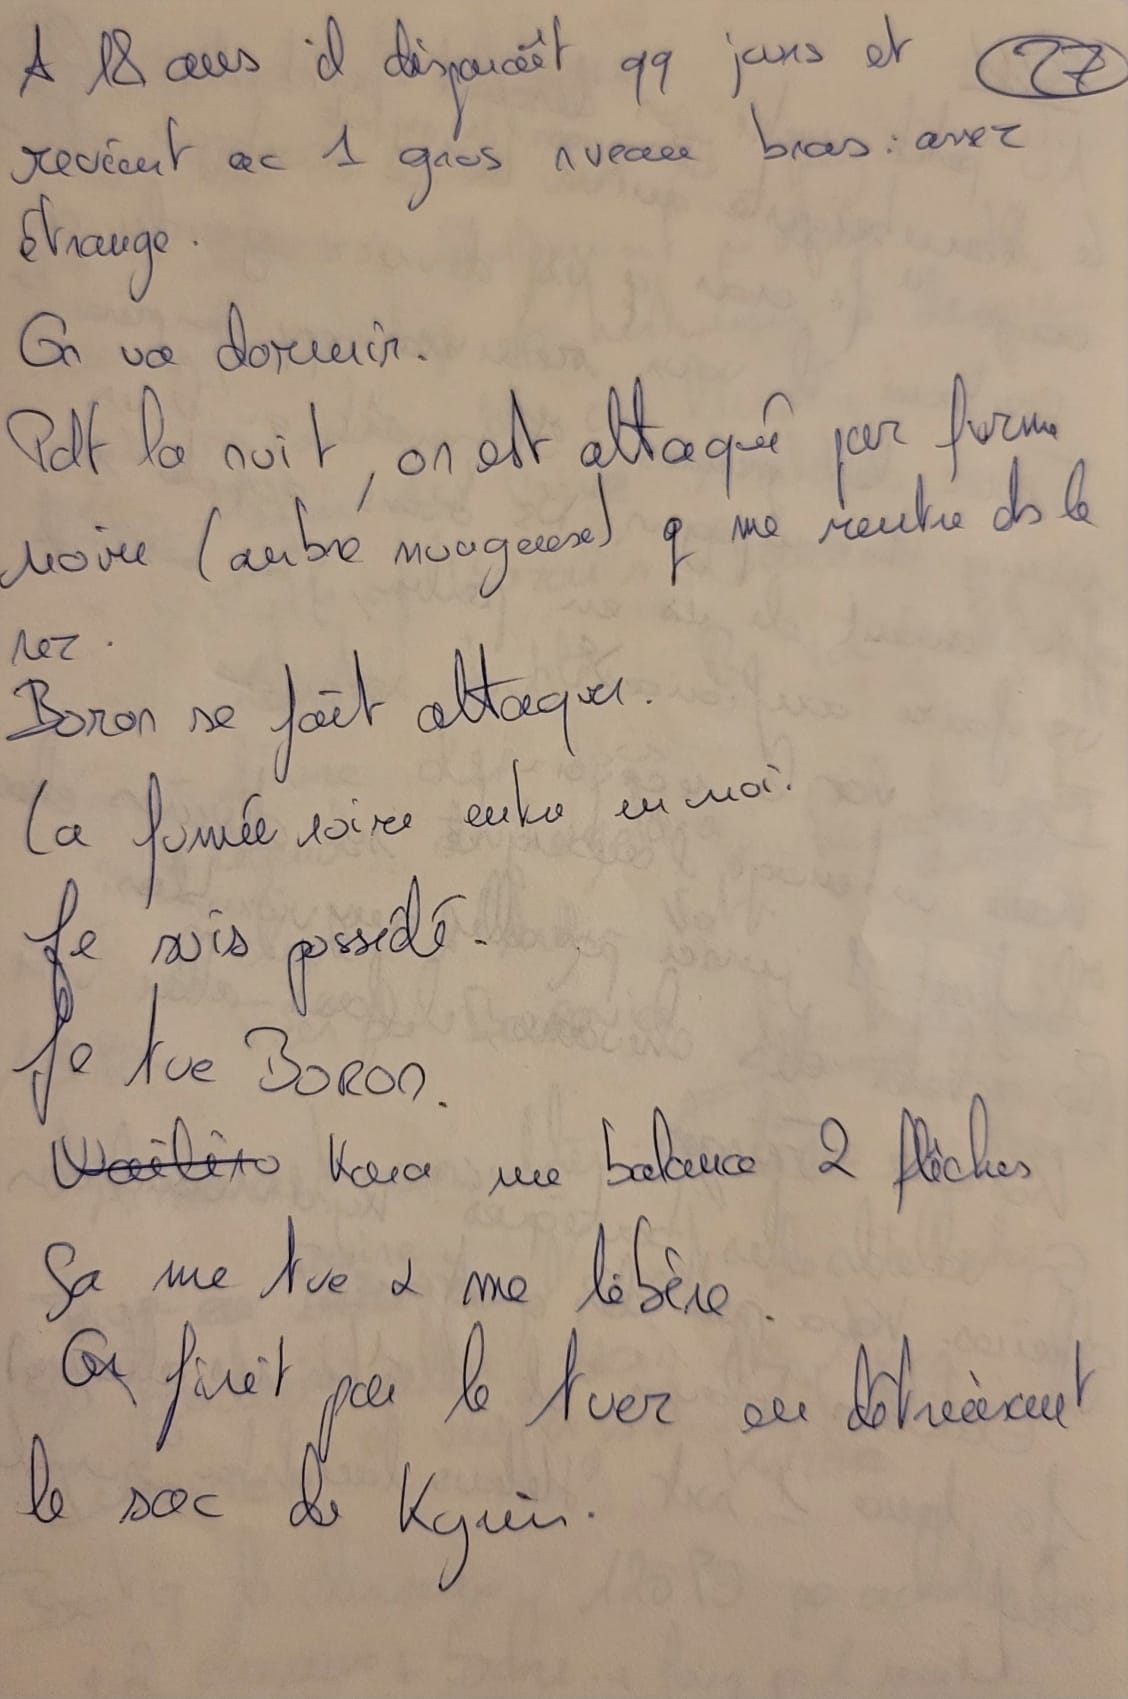 A 18 ans il disparaît 99 jours et (27)
revient ac 1 gros nveau bras : assez
étrange.
On va dormir.
Pdt la nuit, on est attaqué par forme
noire (ombre nuageuse) q me rentre ds le
nez.
Boron se fait attaquer.
La fumée noire entre en moi.
Je suis possédé.
Je tue BORON.
Kara me balance 2 flèches
Ça me tue & me libère.
On finit par le tuer en détruisant
le sac de Kyrin.